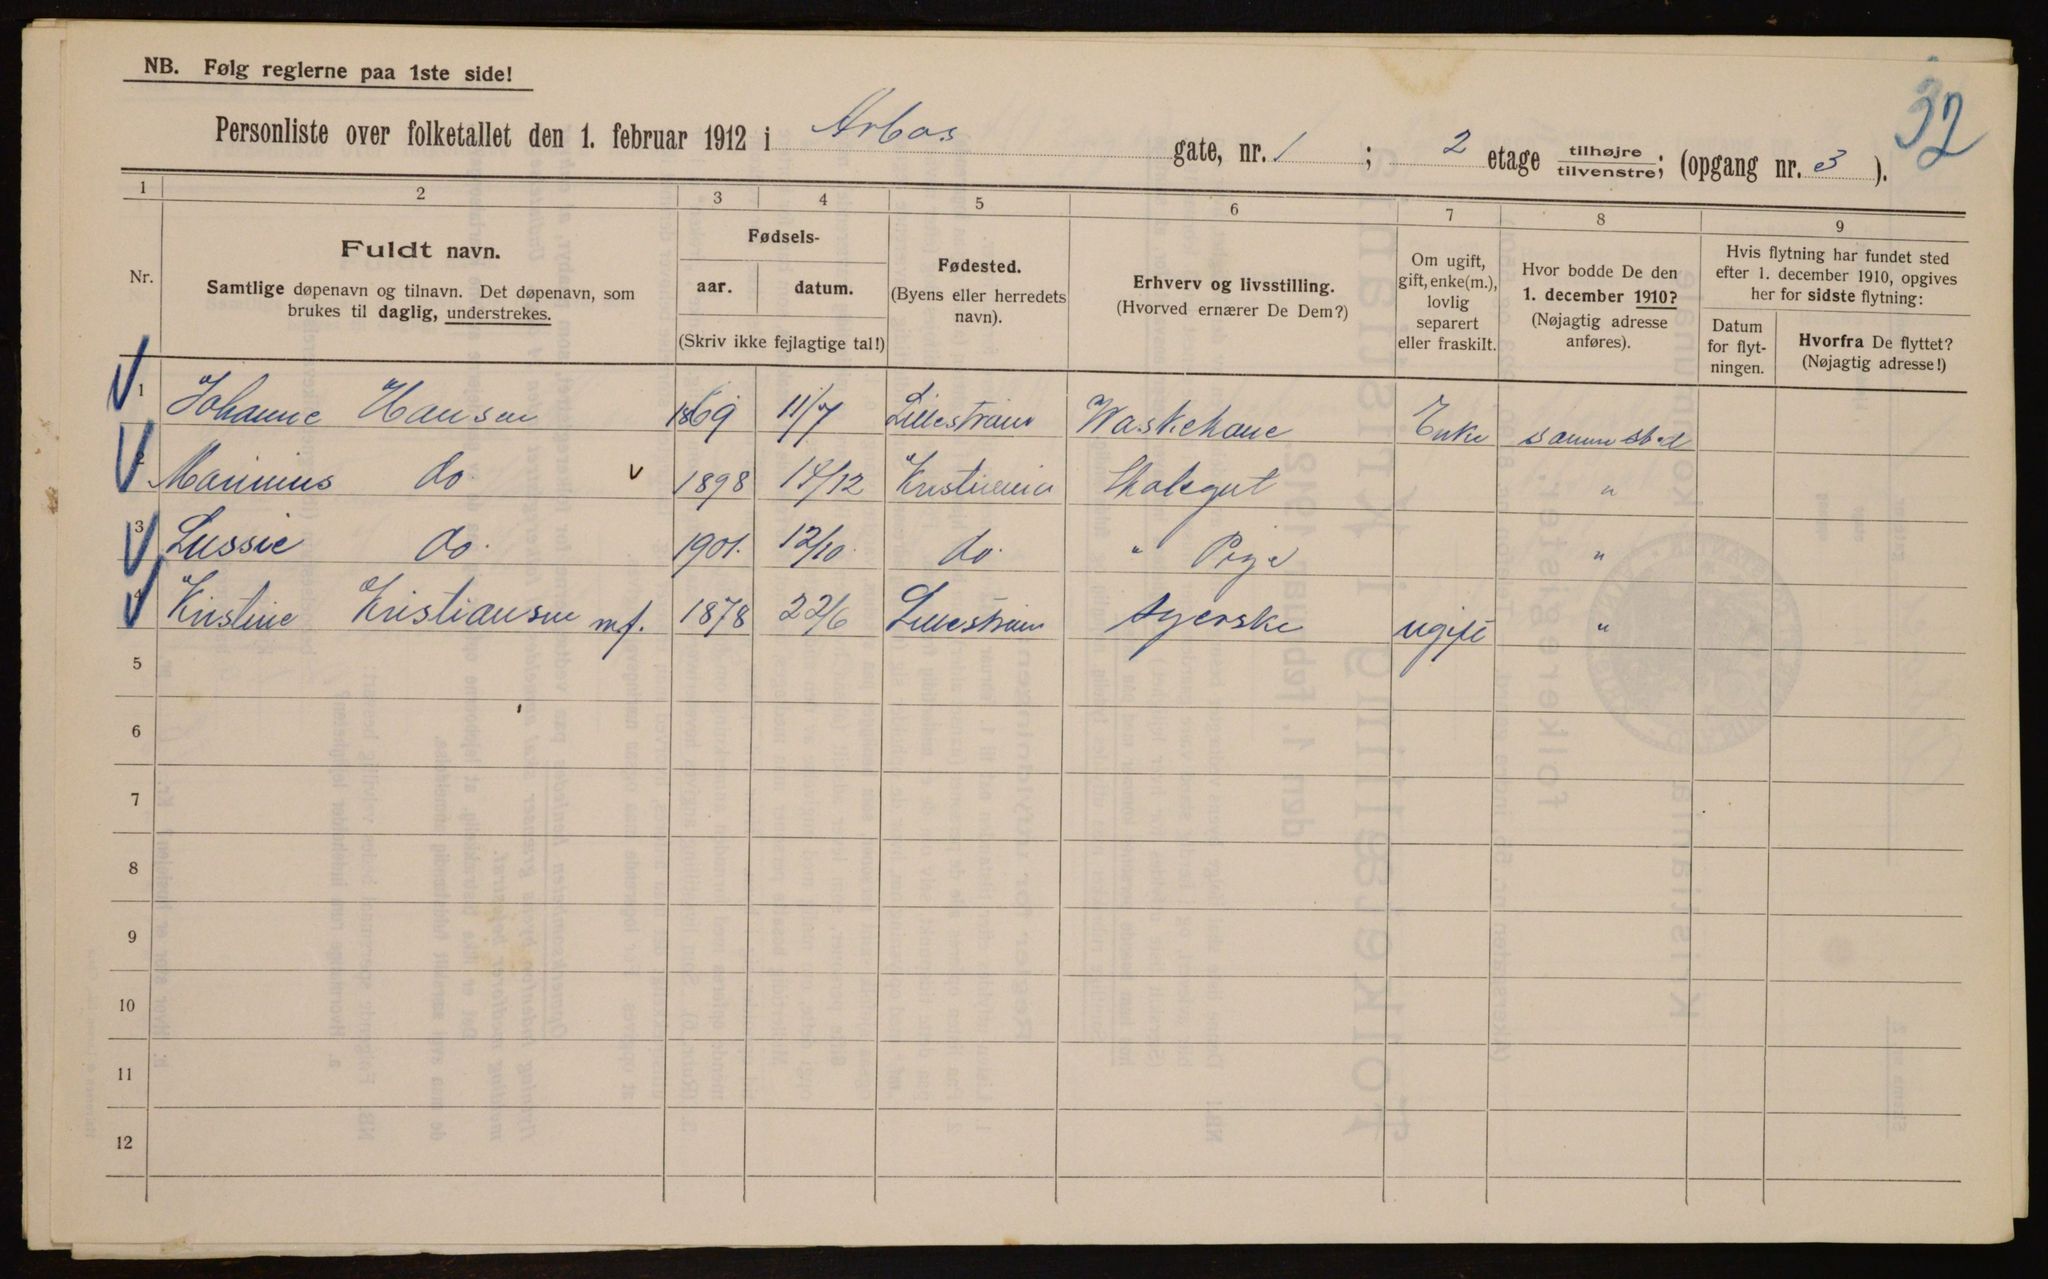 NB. Følg reglerne paa 1ste side!
32
Personliste over folketallet den 1. februar 1912 i Arbos gate, nr. 1 ; 2 etage tilhøjre/tilvenstre; (opgang nr. 3 ).
1 2 3 4 5 6 7 8 9
Nr.
Fuldt navn.
Samtlige døpenavn og tilnavn. Det døpenavn, som
brukes til daglig, understrekes.
Fødsels-
aar. datum.
(Skriv ikke fejlagtige tal!)
Fødested.
(Byens eller herredets
navn).
Erhverv og livsstilling.
(Hvorved ernærer De Dem?)
Om ugift,
gift, enke(m.),
lovlig
separert
eller fraskilt.
Hvor bodde De den
1. december 1910?
(Nøjagtig adresse
anføres).
Hvis flytning har fundet sted
efter 1. december 1910, opgives
her for sidste flytning:
Datum
for flyt-
ningen.
Hvorfra De flyttet?
(Nøjagtig adresse!)
1 Johanne Hansen 1869 11/7 Lillestrøm Waskekone Enke samme sted
2 Marinius do v 1898 14/12 Kristiania Skolegut "
3 Lussie do. 1901. 12/10 do. " Pige "
4 Kristine Kristiansen m.f. 1878 22/6 Lillestrøm syerske ugift "
5
6
7
8
9
10
11
12